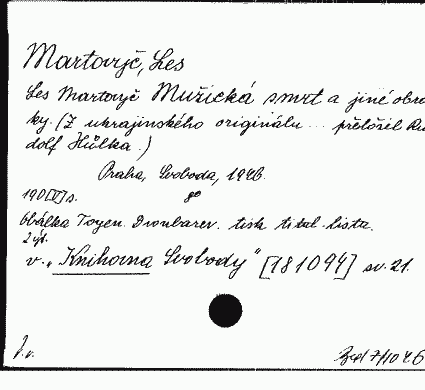 Martovyč, Les
Les Martovyč Mužická smrt a jiné obráz
ky. (Z ukrajinského originálu ... přeložil Ru
dolf Hůlka.)
Praha, Svoboda, 1946.
190[V] s. 8°
Obálka Toyen. Dvoubarev. tisk titul. listu.
2 výt.
v. „Knihovna Svobody" [181094] sv. 21.
J.v.
7/10 46